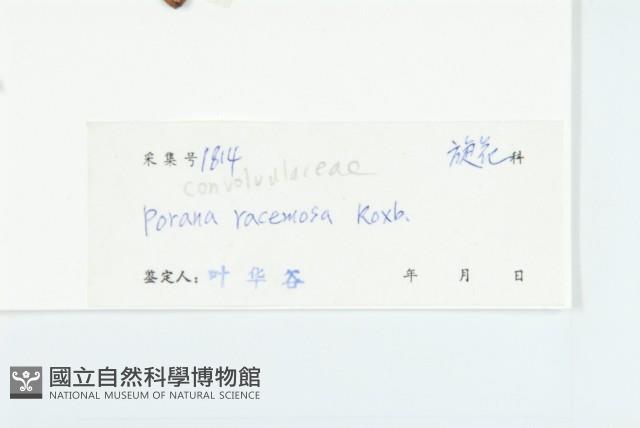 采集号 1814 旋花科
convolvulaceae
Porana racemosa Roxb.
鉴定人：叶华谷 年 月 日
國立自然科學博物館
NATIONAL MUSEUM OF NATURAL SCIENCE